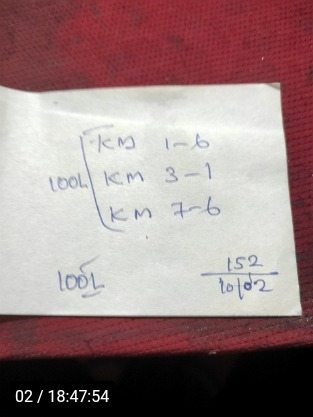 KM 1-6
100L KM 3-1
KM 7-6
100L
152
10/02
02 / 18:47:54